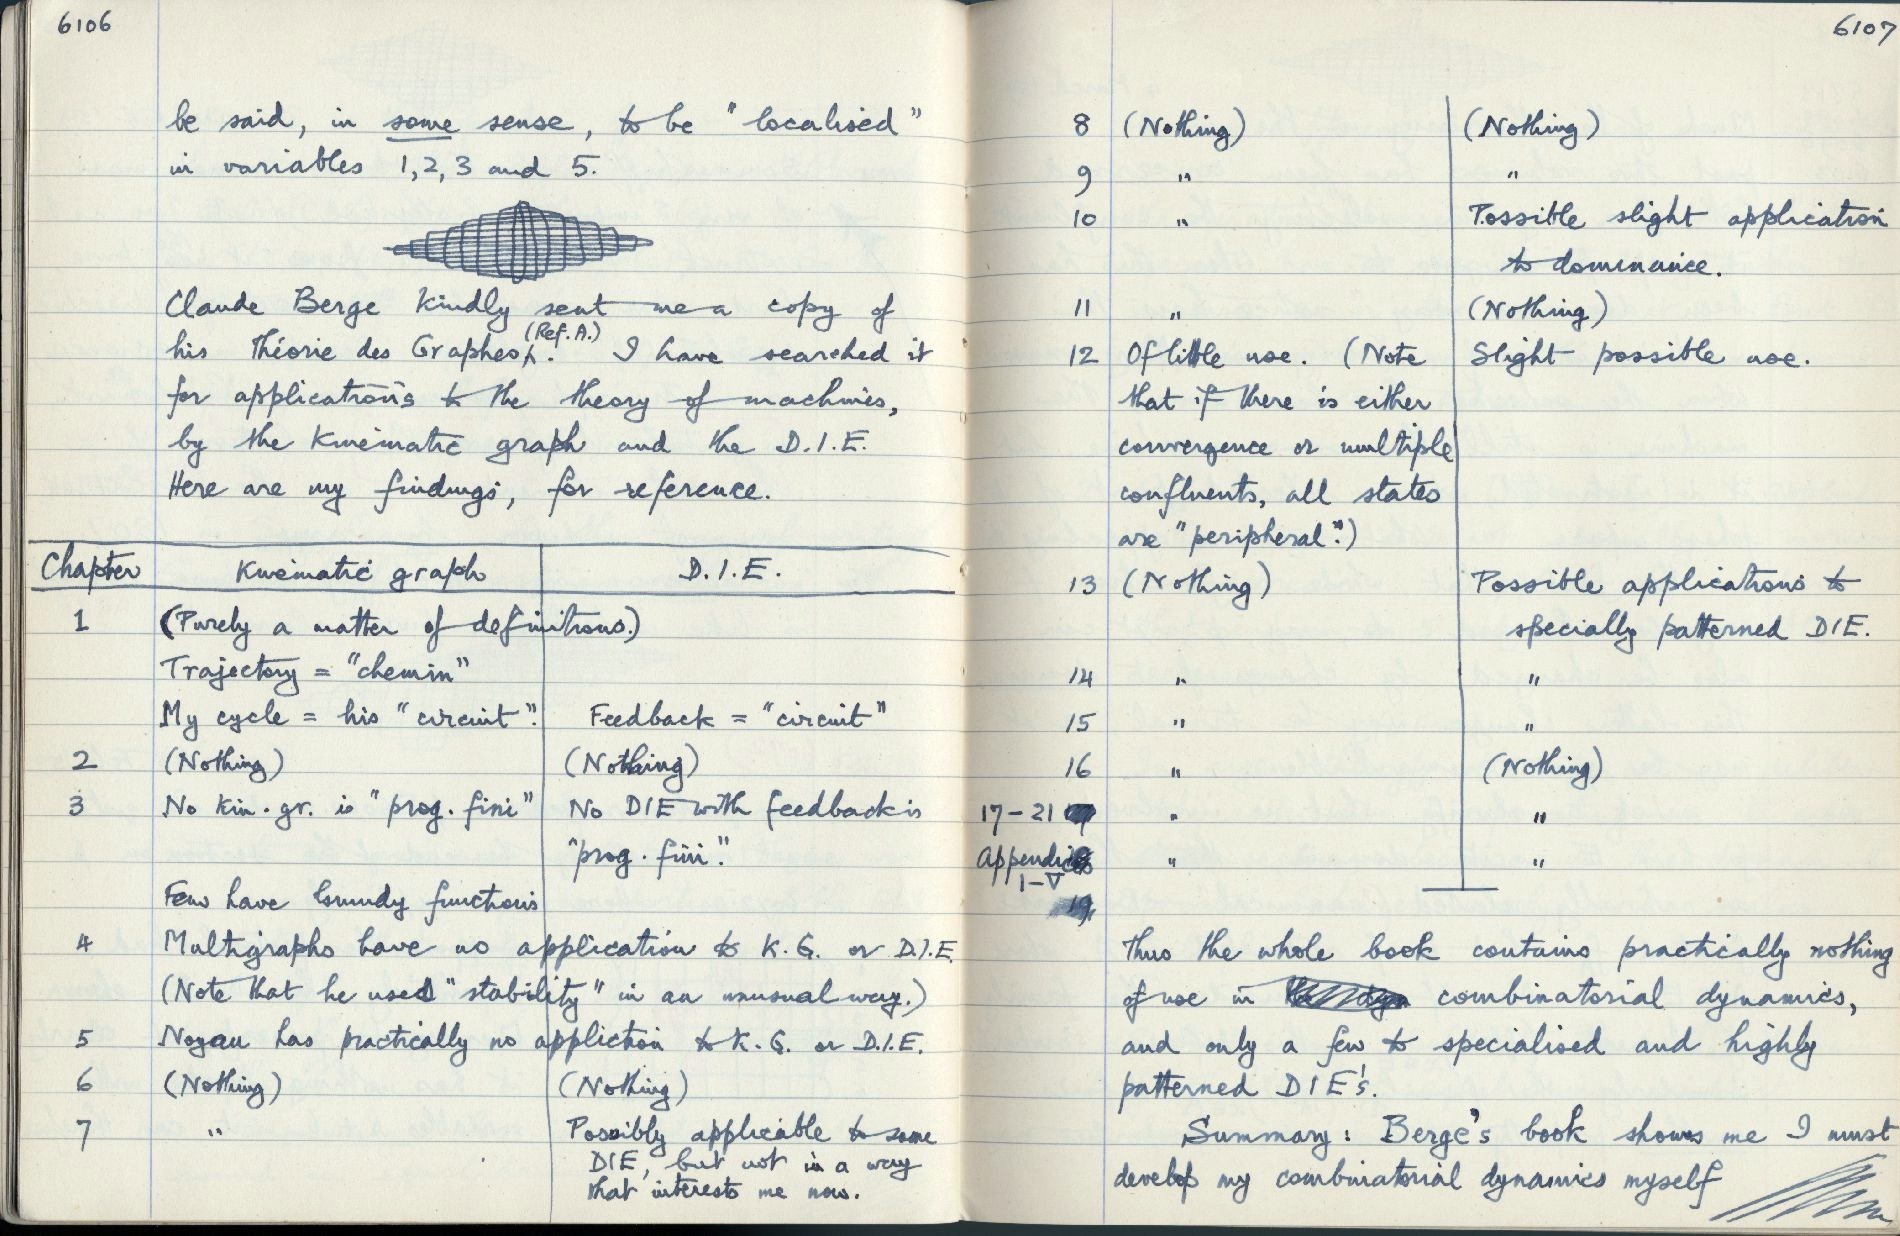 6106
be said, in some sense, to be "localised"
in variables 1, 2, 3 and 5.
Claude Berge kindly sent me a copy of
his Théorie des Graphes (Ref. A.). I have searched it
for applications to the theory of machines,
by the kinematic graph and the D.I.E.
Here are my findings, for reference.
Chapter Kinematic graph D.I.E.
1 (Purely a matter of definitions.)
Trajectory = "chemin"
My cycle = his "circuit". Feedback = "circuit"
2 (Nothing) (Nothing)
3 No kin. gr. is "prog. fini" No DIE with feedback is
"prog. fini."
Few have Grundy functions
4 Multigraphs have no application to K.G. or D.I.E.
(Note that he uses "stability" in an unusual way.)
5 Noyau has practically no appliction to K.G. or D.I.E.
6 (Nothing) (Nothing)
7 " Possibly applicable to some
DIE, but not in a way
that interests me now.
6107
8 (Nothing) (Nothing)
9 " "
10 " Possible slight application
to dominance.
11 " (Nothing)
12 Of little use. (Note Slight possible use.
that if there is either
convergence or multiple
confluents, all states
are "peripheral".)
13 (Nothing) Possible applications to
specially patterned DIE.
14 " "
15 " "
16 " (Nothing)
17-21 " "
Appendices " "
I-V
Thus the whole book contains practically nothing
of use in combinatorial dynamics,
and only a few to specialised and highly
patterned DIE's.
Summary: Berge's book shows me I must
develop my combinatorial dynamics myself